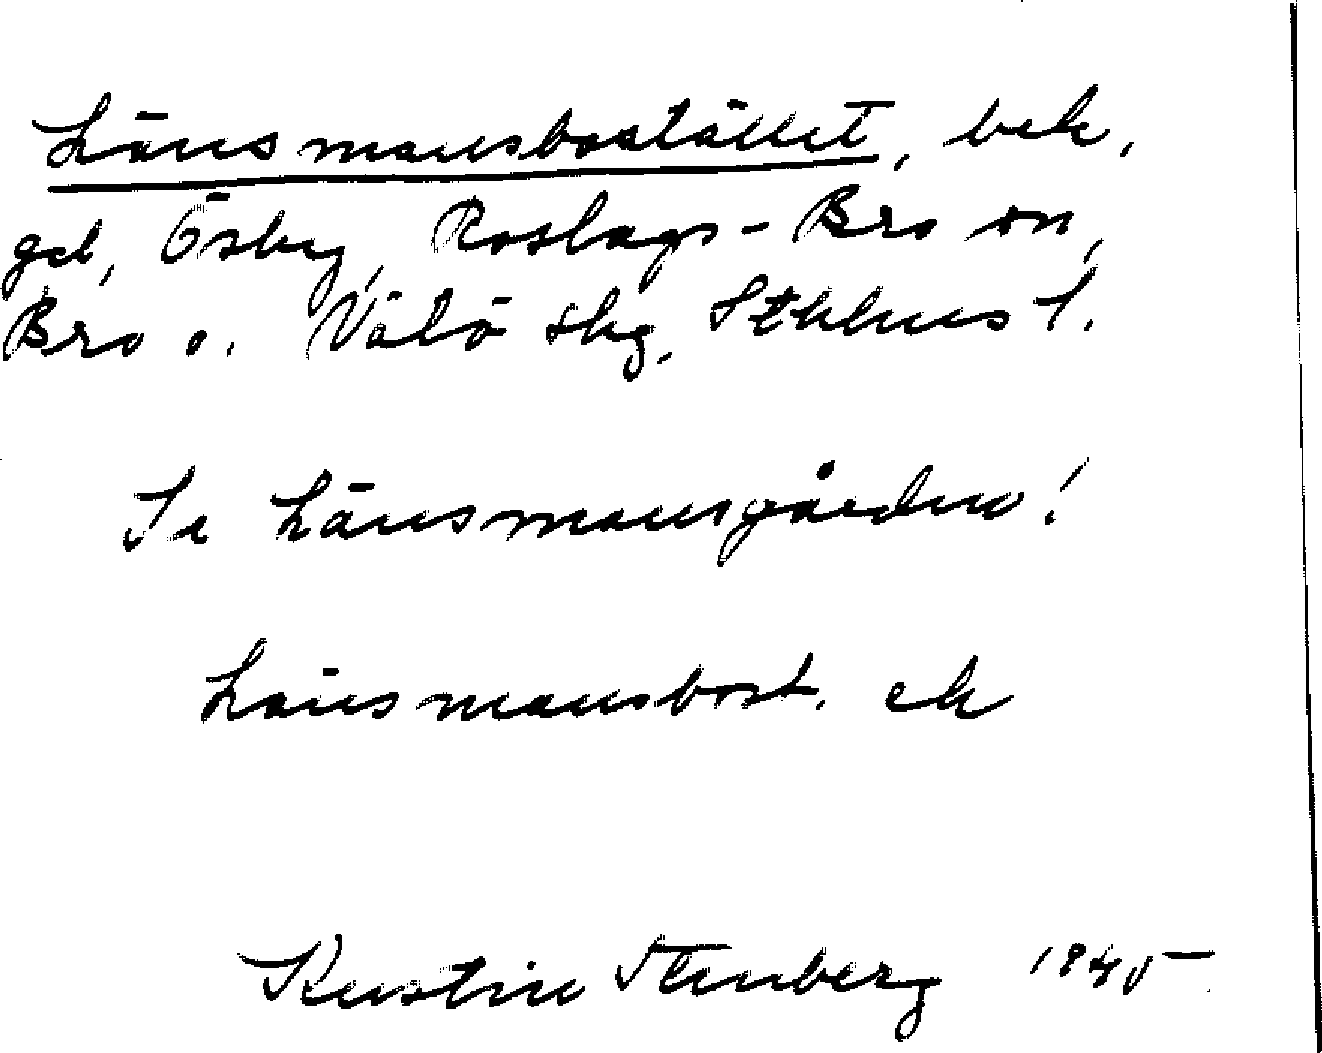 Länsmansbostället, bek.
geb, Ösby, Roslags-Bro sn,
Bro o. Vätö skg. Sthlms l.
Se Länsmansgården!
Länsmansbost. ek
Kerstin Stenberg 1945